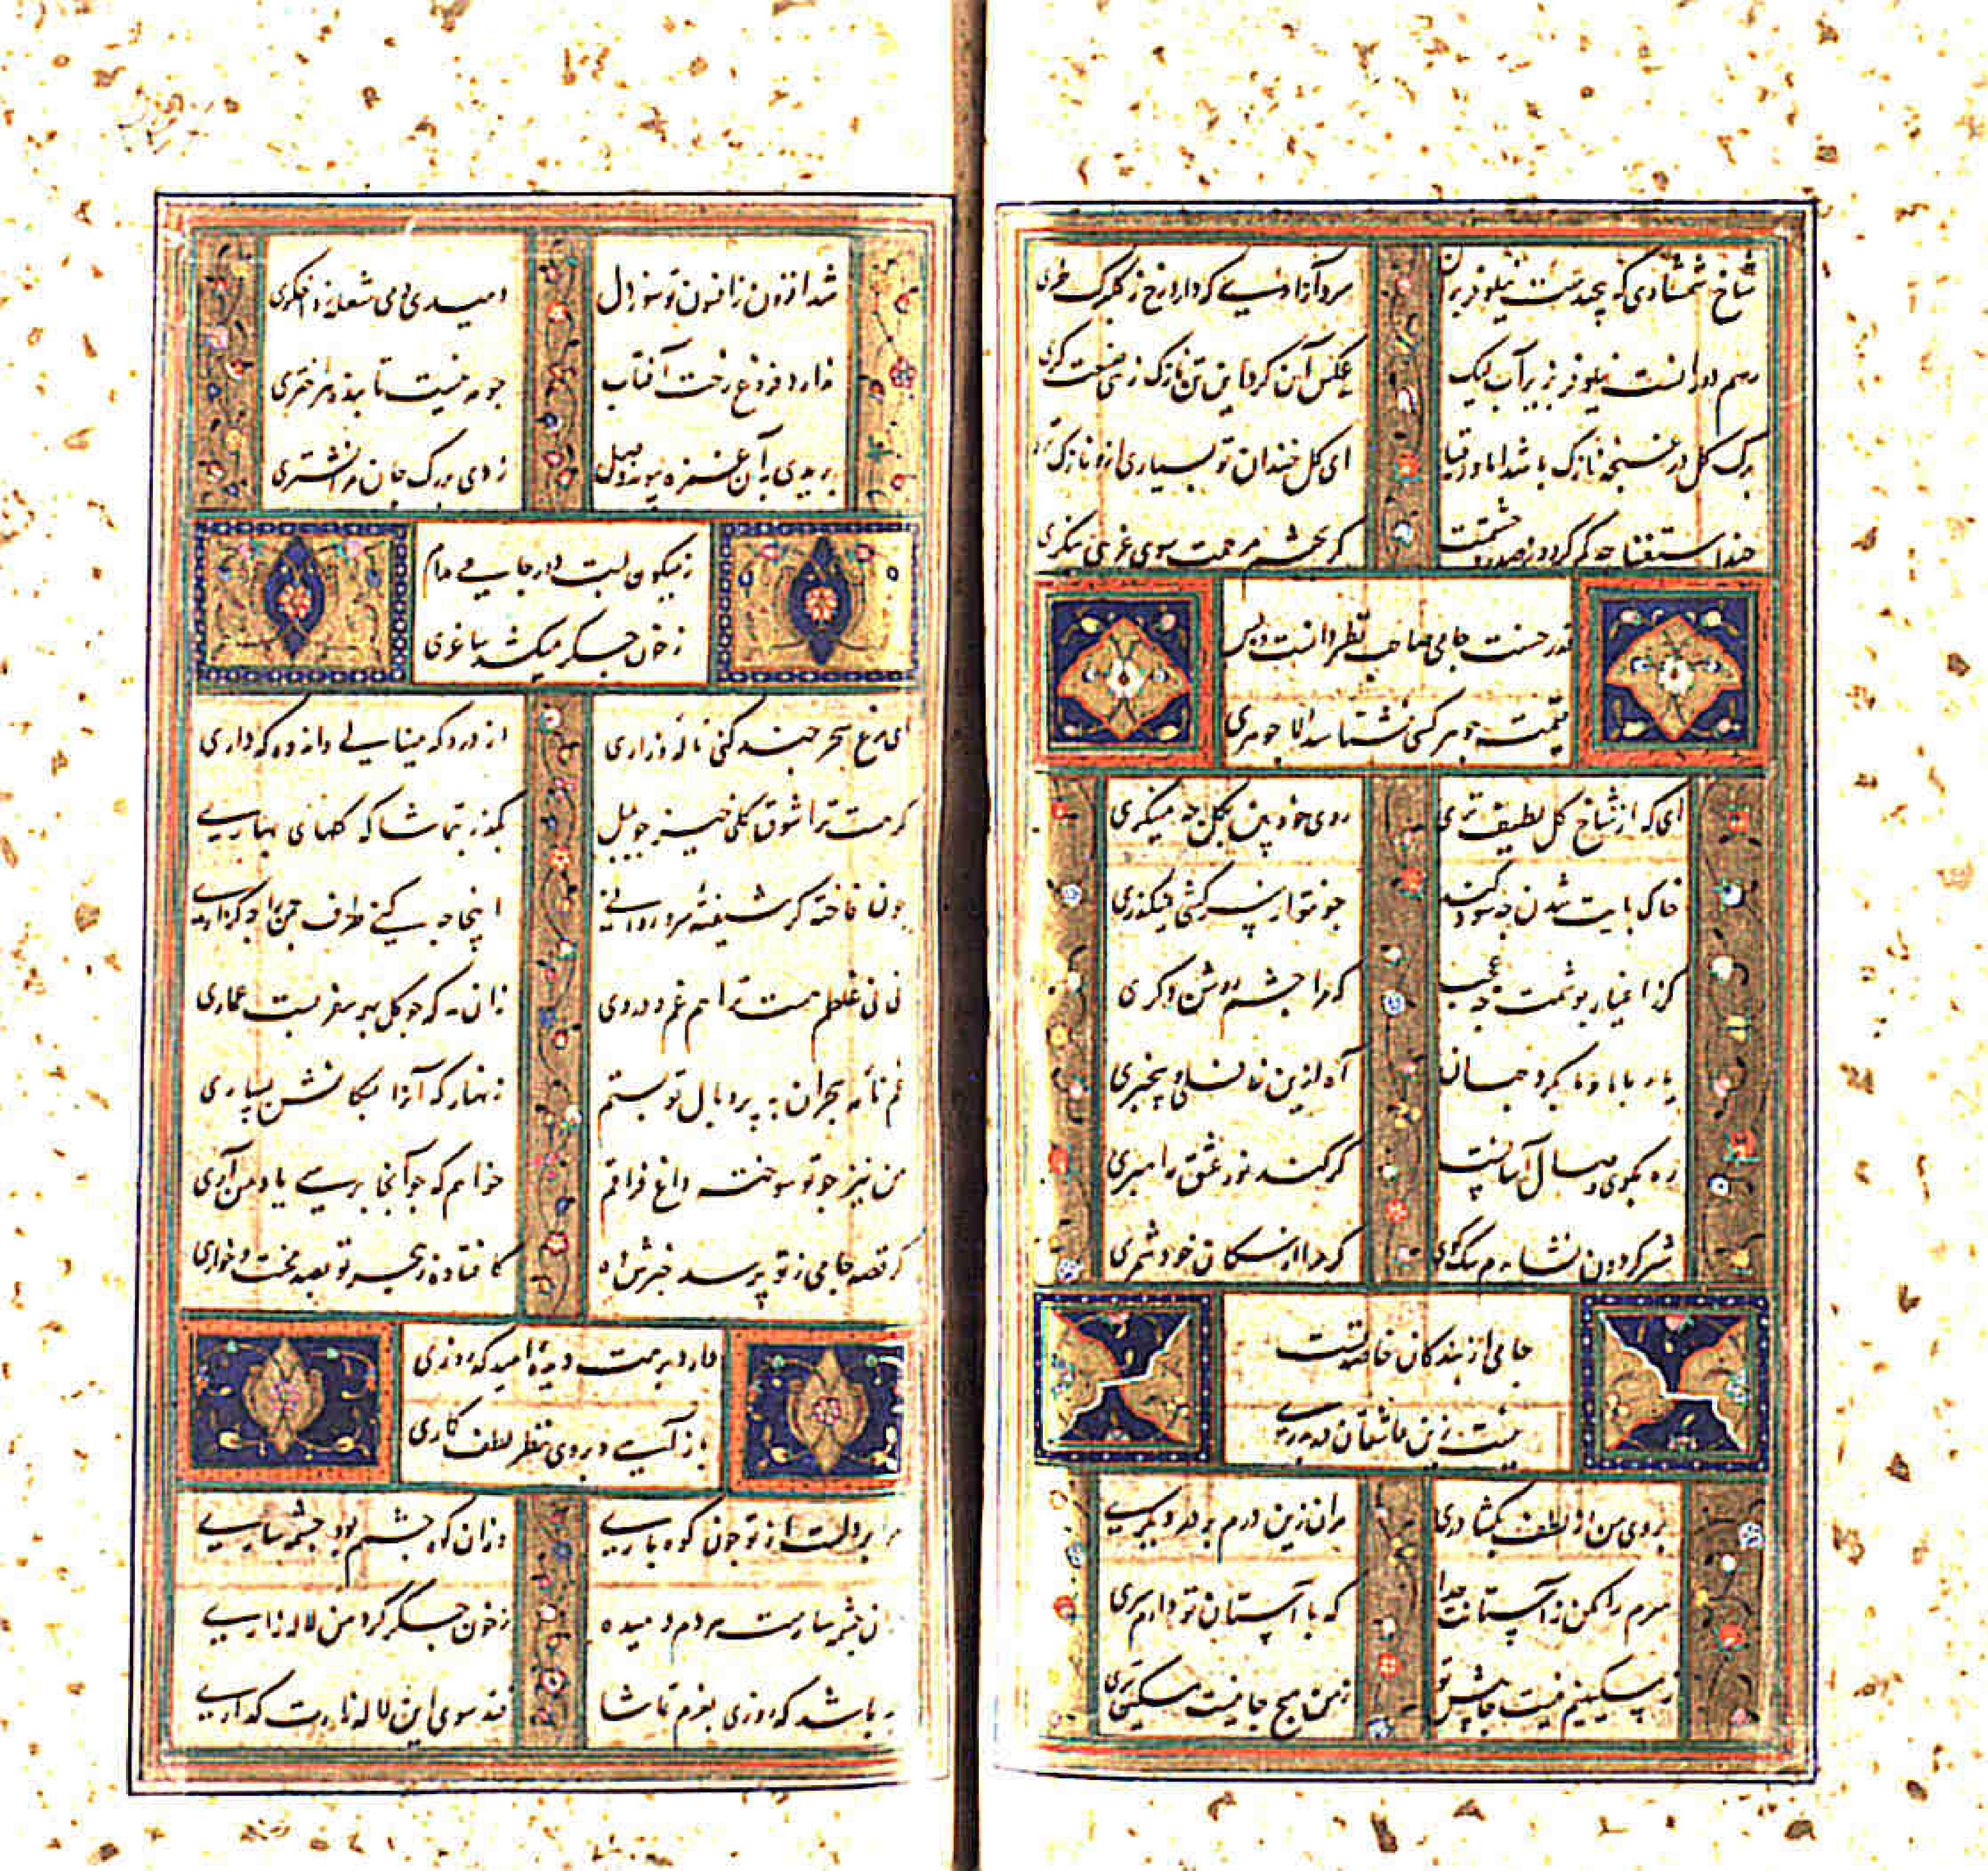 شاخ شمشادی که پیچیدست نیلوفر بران
سرو آزادی که دارد رخ ز گلبرک طری
رسم دورانست نیلوفر بزیر آب لیک
عکس آن کرد این تن نازک ز نی صنعت کری
برک کل در غنچه نازک باشد اما در قبا
ای کل خندان تو بسیاری ازو نازک
استغنا چه کم کردد ز صد حشمتت
کر بچشم مرحمت سوی غریبی بنکری
قدر حسنت جامی صاحب نظر دانست و بس
قیمت جوهر کسی نشناسد الا جوهری
ای که از شاخ کل لطیف‌تری
روی خود بین بکل چه مینکری
خاک پایت شدن چه سود کند
چو تو از سرکشی نمیکذری
کر ز اغیار پوشمت چه عجب
که مرا چشم روشن دکری
یار با ما و ما بکرد جهان
آه ازین غافلی و بیخبری
ره بکوی وصال آسانست
کر کند نور عشق راهبری
شیر کردون نشایدم سک کوی
کر مرا از سکان خود شمری
جامی از بندکان خاصه تست
نیست زین عاشقان در بدری
بروی من از لطف بکشا دری
مران زین درم بر در دیکری
سرم را مکن ز آستانت جدا
که با آستان تو دارم سری
ز مسکینیم نیست جا پیش تو
ز من هیچ جا نیست مسکین‌تری
شد افزون ز افسون تو سوز دل
دمیدی دمی شعله زد اخکری
ندارد فروغ رخت آفتاب
چو مه نیست تابنده هر اختری
بریدی بآن غمزه پیوند وصل
زدی بر رک جان من نشتری
ز میکون لبت دور جامی مدام
ز خون جکر میکشد ساغری
ای مرغ سحر چند کنی ناله و زاری
از درد که مینالی و اندوه که داری
کر هست ترا شوق کلی خیز چو بلبل
بکذر بتماشا که کلهای بهاری
چون فاخته کر شیفتهٔ سرو روانی
اینجا چه کنی طرف چمن را چه کذاری
نی نی غلطم هست ترا هم غم و دردی
زان مه که چو کل بهر سفر بست عماری
غم نامه هجران به پر و بال تو بستم
زنهار که آنرا بمکانش بسپاری
من نیز چو تو سوخته داغ فراقم
خواهم که چو آنجا برسی یاد من آری
کر قصه جامی ز تو پرسد خبرش ده
کافتاده ز هجر تو بصد محنت و خواری
دارد برهت دیده امید که روزی
باز آیی و بروی نظر لطف کاری
مرا بر دلست از تو چون کوه باری
وزان کوه چشمم بود چشمه ساری
ز خون جکر کرد من لاله زاری
چه باشد که روزی بعزم تماشا
فتد سوی این لاله زارت کذاری